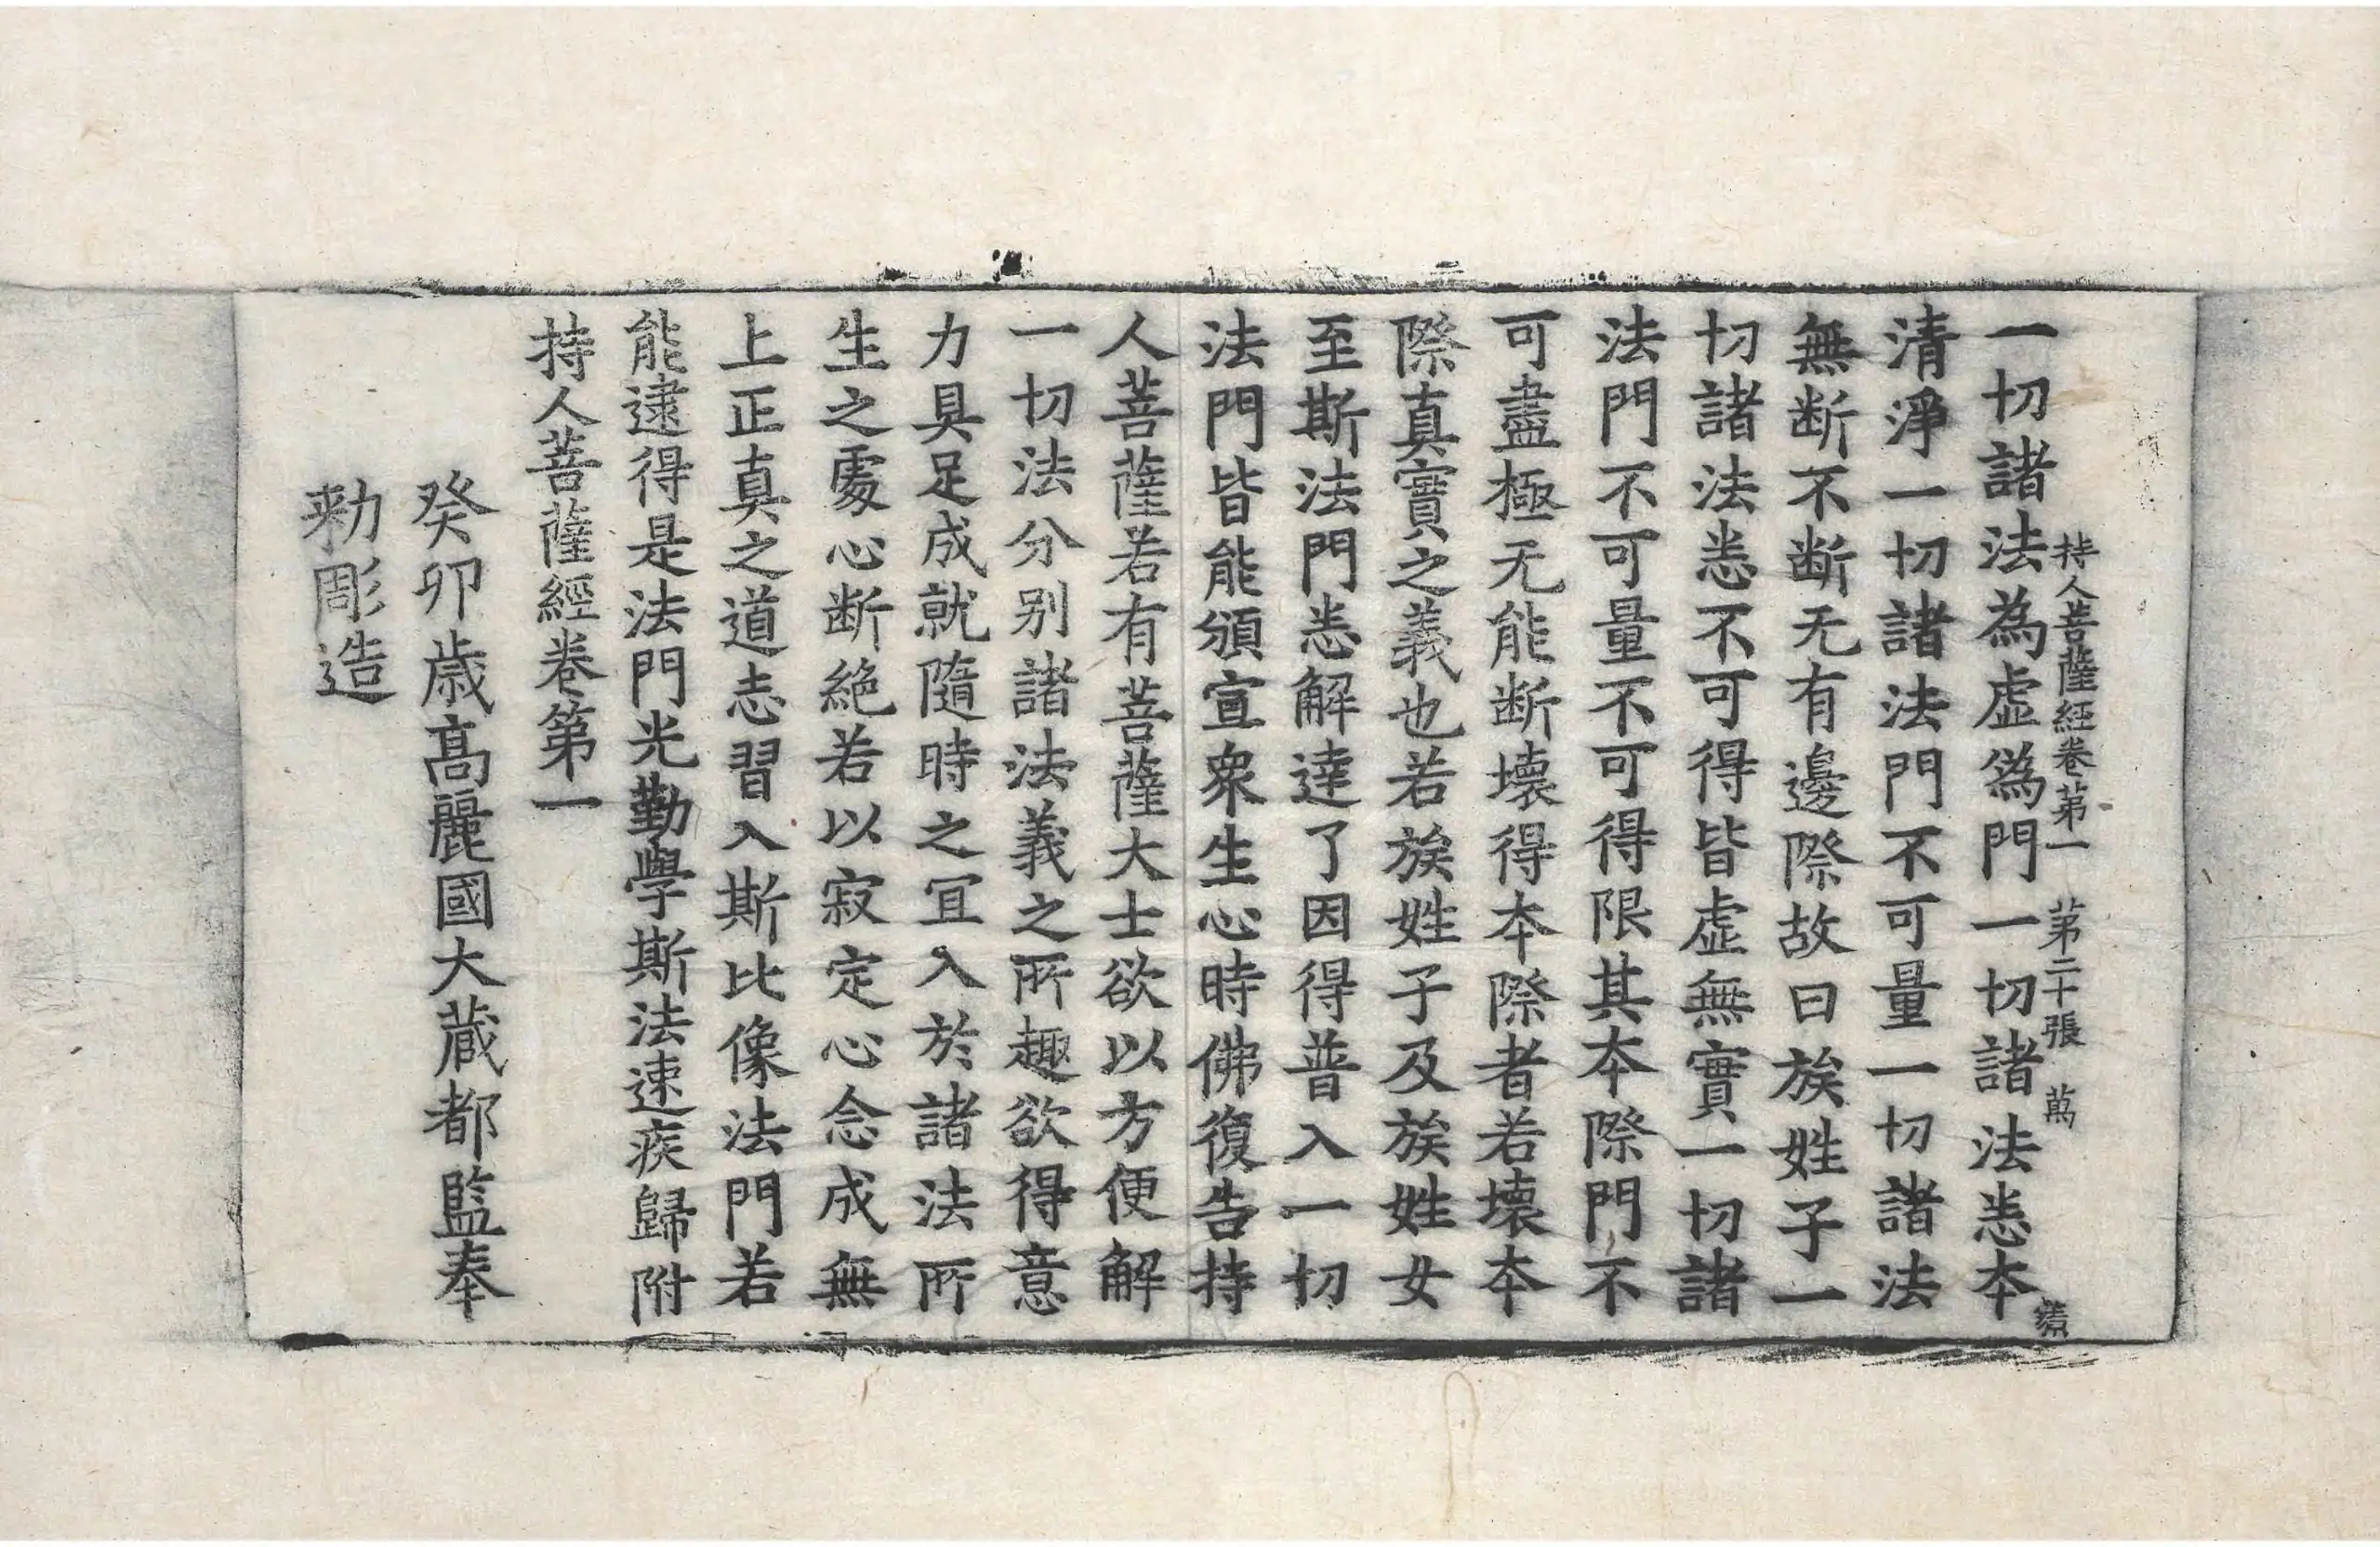 持人菩薩經卷第一 第二十張 萬
一切諸法為虛僞門一切諸法悉本
清淨一切諸法門不可量一切諸法
無断不断无有邊際故曰族姓子一
切諸法悉不可得皆虛無實一切諸
法門不可量不可得限其本際門不
可盡極无能断壞得本際者若壞本
際真實之義也若族姓子及族姓女
至斯法門悉解達了因得普入一切
法門皆能頒宣衆生心時佛復告持
人菩薩若有菩薩大士欲以方便解
一切法分别諸法義之所趣欲得意
力具足成就隨時之冝入於諸法所
生之處心断絕若以寂定心念成無
上正真之道志習入斯比像法門若
能逮得是法門光勤學斯法速疾歸附
持人菩薩經卷第一
癸卯歳髙麗國大蔵都監奉
勑彫造